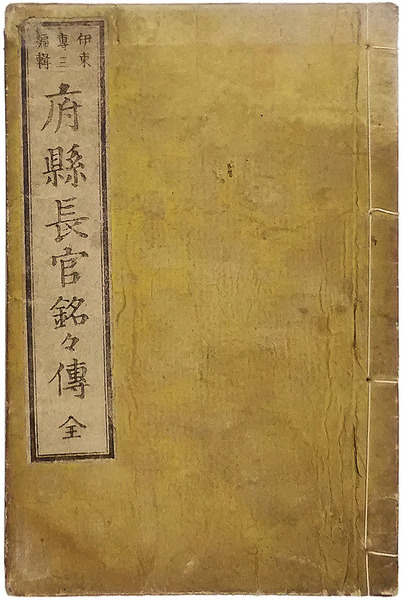 伊東
專三
編輯
府縣長官銘々傳 全